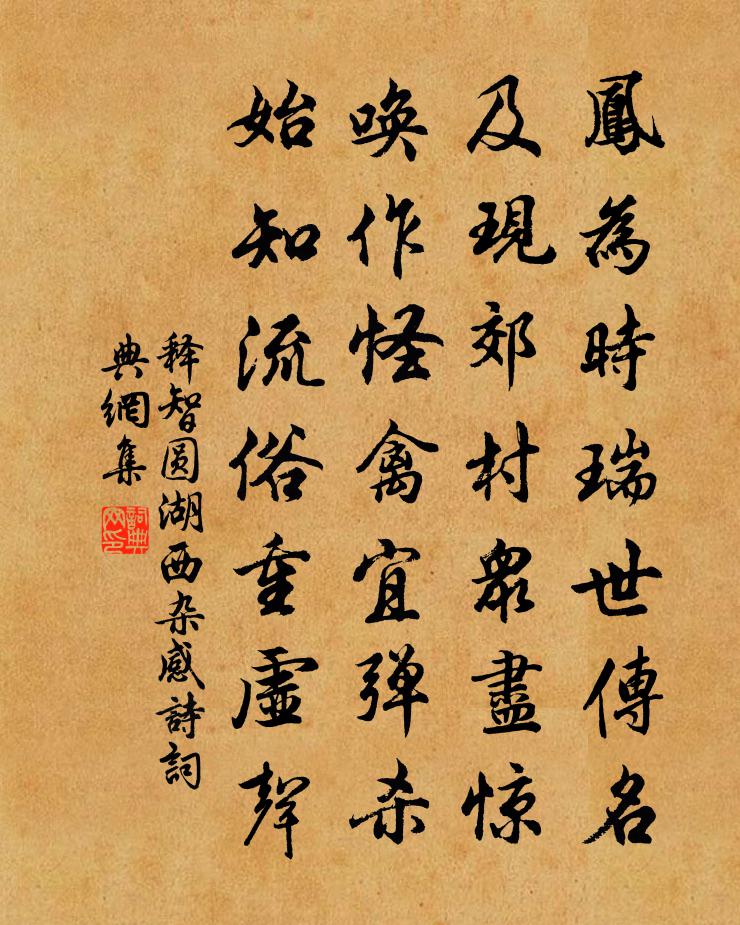 鳳為時瑞世傳名
及現郊村衆盡惊
喚作怪禽宜弹杀
始知流俗重虛聲
释智圆湖西杂感詩詞
典網集
詞典
网印